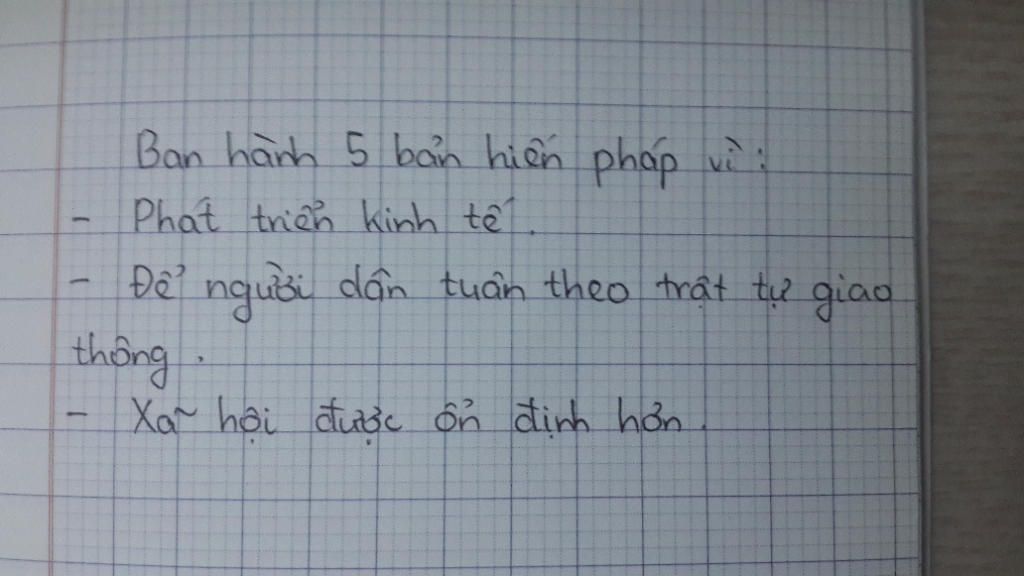 Ban hành 5 bản hiến pháp vì:
- Phát triển kinh tế.
- Để người dân tuân theo trật tự giao
thông.
- Xã hội được ổn định hơn.